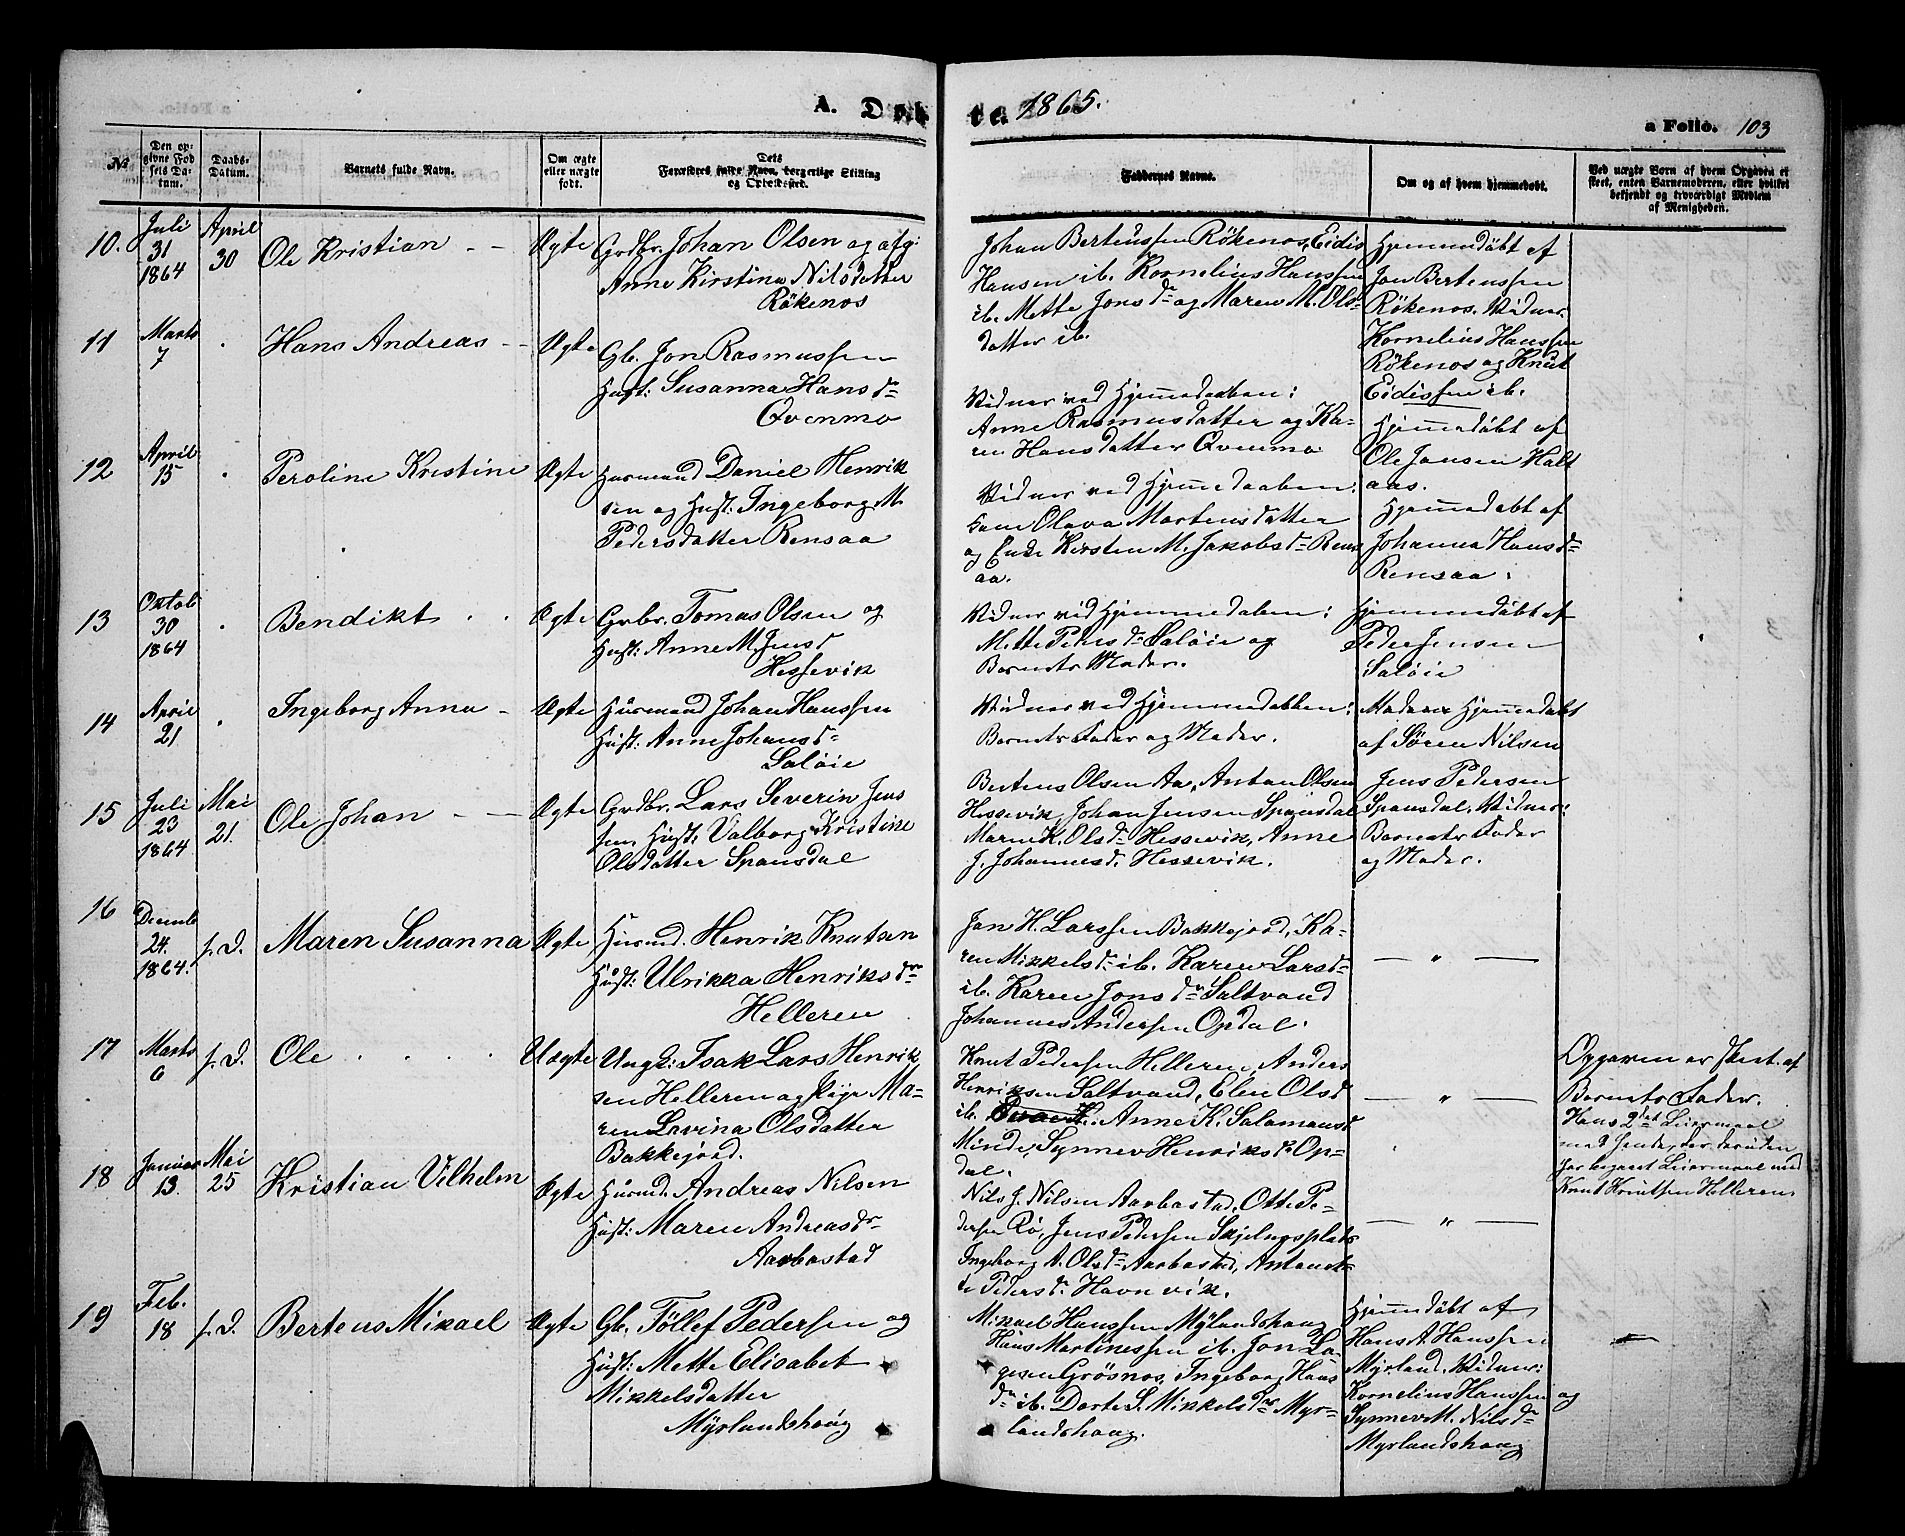 A. Døb
te. 1865.
a Folio. 103
№
Den op-
givne Fød
sels Da-
tum.
Daabs-
Datum.
Barnets fulde Navn.
Om ægte
eller uægte
født.
Dets
Forældres fulde Navn, borgerlige Stilling
og Opholdssted.
Faddernes Navne.
Om og af hvem hjemmedøbt.
Ved uægte Børn af hvem Opgaven er
skeet, enten Barnemoderen, eller hvilket
bekjendt og troværdigt Medlem
af Menigheden.
10.
Juli
31
1864
April
30
Ole Kristian
Ægte
Grdbr. Johan Olsen og afg:
Anne Kirstina Nilsdatter
Røkenos
Johan Berteussen Røkenos, Eidis
Hansen ib. Kornelius Hanssen
ib. Mette Jonsdr og Maren M. Ols-
datter ib.
Hjemmedøbt af
Jon Bertenssen
Røkenos. Vidner
Kornelius Hanssen
Røkenos og Knut
Eidissen ib.
11
Marts
7
Hans Andreas
Ægte
Gb. Jon Rasmussen
Hust: Susanna Hansdr
Qvenmo
Vidner ved Hjemmedaaben:
Anne Rasmusdatter og Ka-
ren Hansdatter Qvenmo
Hjemmedøbt af
Ole Jansen Halt
aas.
12
April
15
Peroline Kristine
Ægte
Husmand Daniel Henrik
sen og Hust: Ingeborg M.
Pedersdatter Rensaa
Vidner ved Hjemmedaaben:
Olava Mortensdatter
og Enke Kirsten M. Jakobsdr Rens
aa.
Hjemmedøbt af
Johanna Hansdr
Rensaa.
13
Oktob
30
1864
Bendikt
Ægte
Grbr. Tomas Olsen og
Hust: Anne M. Jensd
Hessevik
Vidner ved Hjemmedaaben:
Mette Pedersdr Saløie og
Barnets Moder.
Hjemmedøbt af
Peder Jensen
Saløie
14
April
21
Ingeborg Anna
Ægte
Husmand Johan Hanssen
Hust: Anne Johansdr
Saløie
Vidner ved Hjemmedaaben:
Barnets Fader og Moder.
Hjemmedøbt
af Søren Nilsen
15
Juli
23
1864
Mai
21.
Ole Johan
Ægte
Grdbr. Lars Severin Jens
sen, Hust: Valborg Kristine
Olsdatter Spansdal
Bertens Olsen Aa, Anton Olsen
Hessevik, Johan Jensen Spansdal
Maren K. Olsdr Hessevik, Anne
J. Johannesd. Hessevik.
Jens Pedersen
Spansdal. Vidner:
Barnets Fader
og Moder.
16
Decemb
24.
1864.
s. D.
Maren Susanna
Ægte
Husmd. Henrik Knutsen
Hust: Ulrikka Henriksdr
Helleren
Jon H. Larssen Bakkejord, Ka-
ren Mikkelsdr ib. Karen Larsdr
ib. Karen Jonsdr Saltvand
Johannes Andersen Opdal.
— " —
17
Marts
6
s. D.
Ole
Uægte
Ungk: Isak Lars Henrik
sen Helleren og Pige Ma-
ren Lovina Olsdatter
Bakkejord.
Knut Pedersen Helleren, Anders
Henriksen Saltvand, Elen Olsd
ib. Anne K. Salamonsd
Minde, Synnev Henriksdr Op-
dal.
— " —
Opgaven er skeet af
Barnets Fader.
Hans 2det Leiermaal
med hende, der desuden
har begaaet Leiermaal med
Knut Knutsen Helleren.
18
Januar
13.
Mai
25
Kristian Vilhelm
Ægte
Husmd. Andreas Nilsen
Hust: Maren Andreasdr
Aarbostad
Nils J. Nilsen Aarbostad, Otte Pe-
dersen Rø, Jens Pedersen Skjelnesplads
Ingeborg A. Olsdr Aarbostad, Antonet-
te Pedersdr Havnvik.
— " —
19
Feb.
18
s. D.
Berteus Mikael
Ægte
Gb. Tøllef Pedersen og
Hust: Mette Elisabet
Mikkelsdatter
Myrlandshaug
Mikael Hanssen Myrlandshaug
Hans Martinessen ib. Jon La-
gesen Grøsnos, Ingeborg Hans
dr ib. Dorte S. Mikkelsdr Myr-
landshaug.
Hjemmedøbt af
Hans A. Hanssen
Myrland. Vidner:
Kornelius Hanssen og
Synnev M. Nilsdr
Myrlandshaug
—